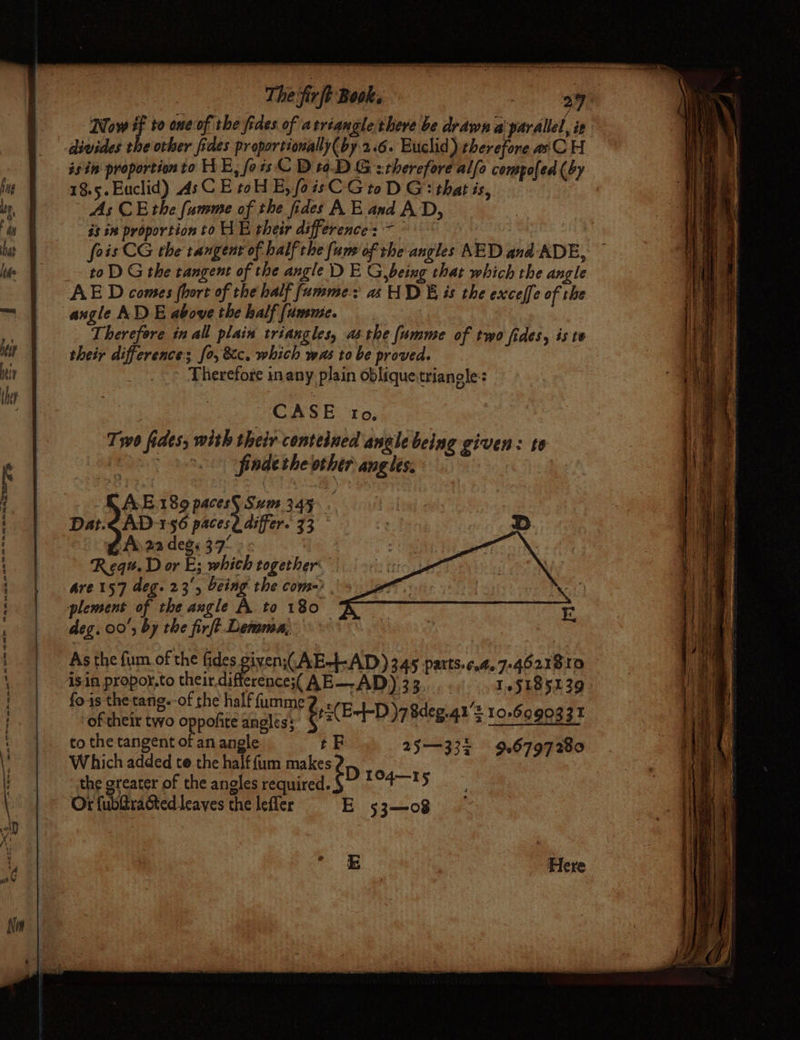 The first Book. 27
Now if to one of the sides of a triangle there be drawn a parallel, it
divides the other sides proportionally (by 2.6. Euclid) therefore as CH
is in proportion to HE, so is CD to DG: therefore also composed (by
18.5. Euclid) As CE to HE, so is CG to DG: that is,
As CE the summe of the sides AE and AD,
is in proportion to HE their difference:
so is CG the tangent of half the sum of the angles AED and ADE,
to DG the tangent of the angle DEG, being that which the angle
AED comes short of the half summe: as HDE is the excesse of the
angle ADE above the half summe.
Therefore in all plain triangles, as the summe of two sides, is to
their difference; so, &c. which was to be proved.
Therefore in any plain oblique triangle:
CASE 10.
Two sides, with their conteined angle being given: to
finde the other angles.
AE 189 paces Sum 345
Dat. AD 156 paces differ. 33
A 22 deg. 37'
Requ. D or E; which together
are 157 deg. 23', being the com-
plement of the angle A to 180
deg. 00', by the first Lemma,
D
A
E
As the sum of the sides given; (AE+AD) 345 parts. c.a. 7.4621810
is in propor, to their difference; (AE—AD) 33 1.5185139
so is the tang. of the half summe
of their two opposite angles; t½(E+D) 78deg.41'½ 10.6990331
to the tangent of an angle t F 25—33½ 9.6797280
Which added to the half sum makes
the greater of the angles required. D 104—15
Or substracted leaves the lesser E 53—08
E Here